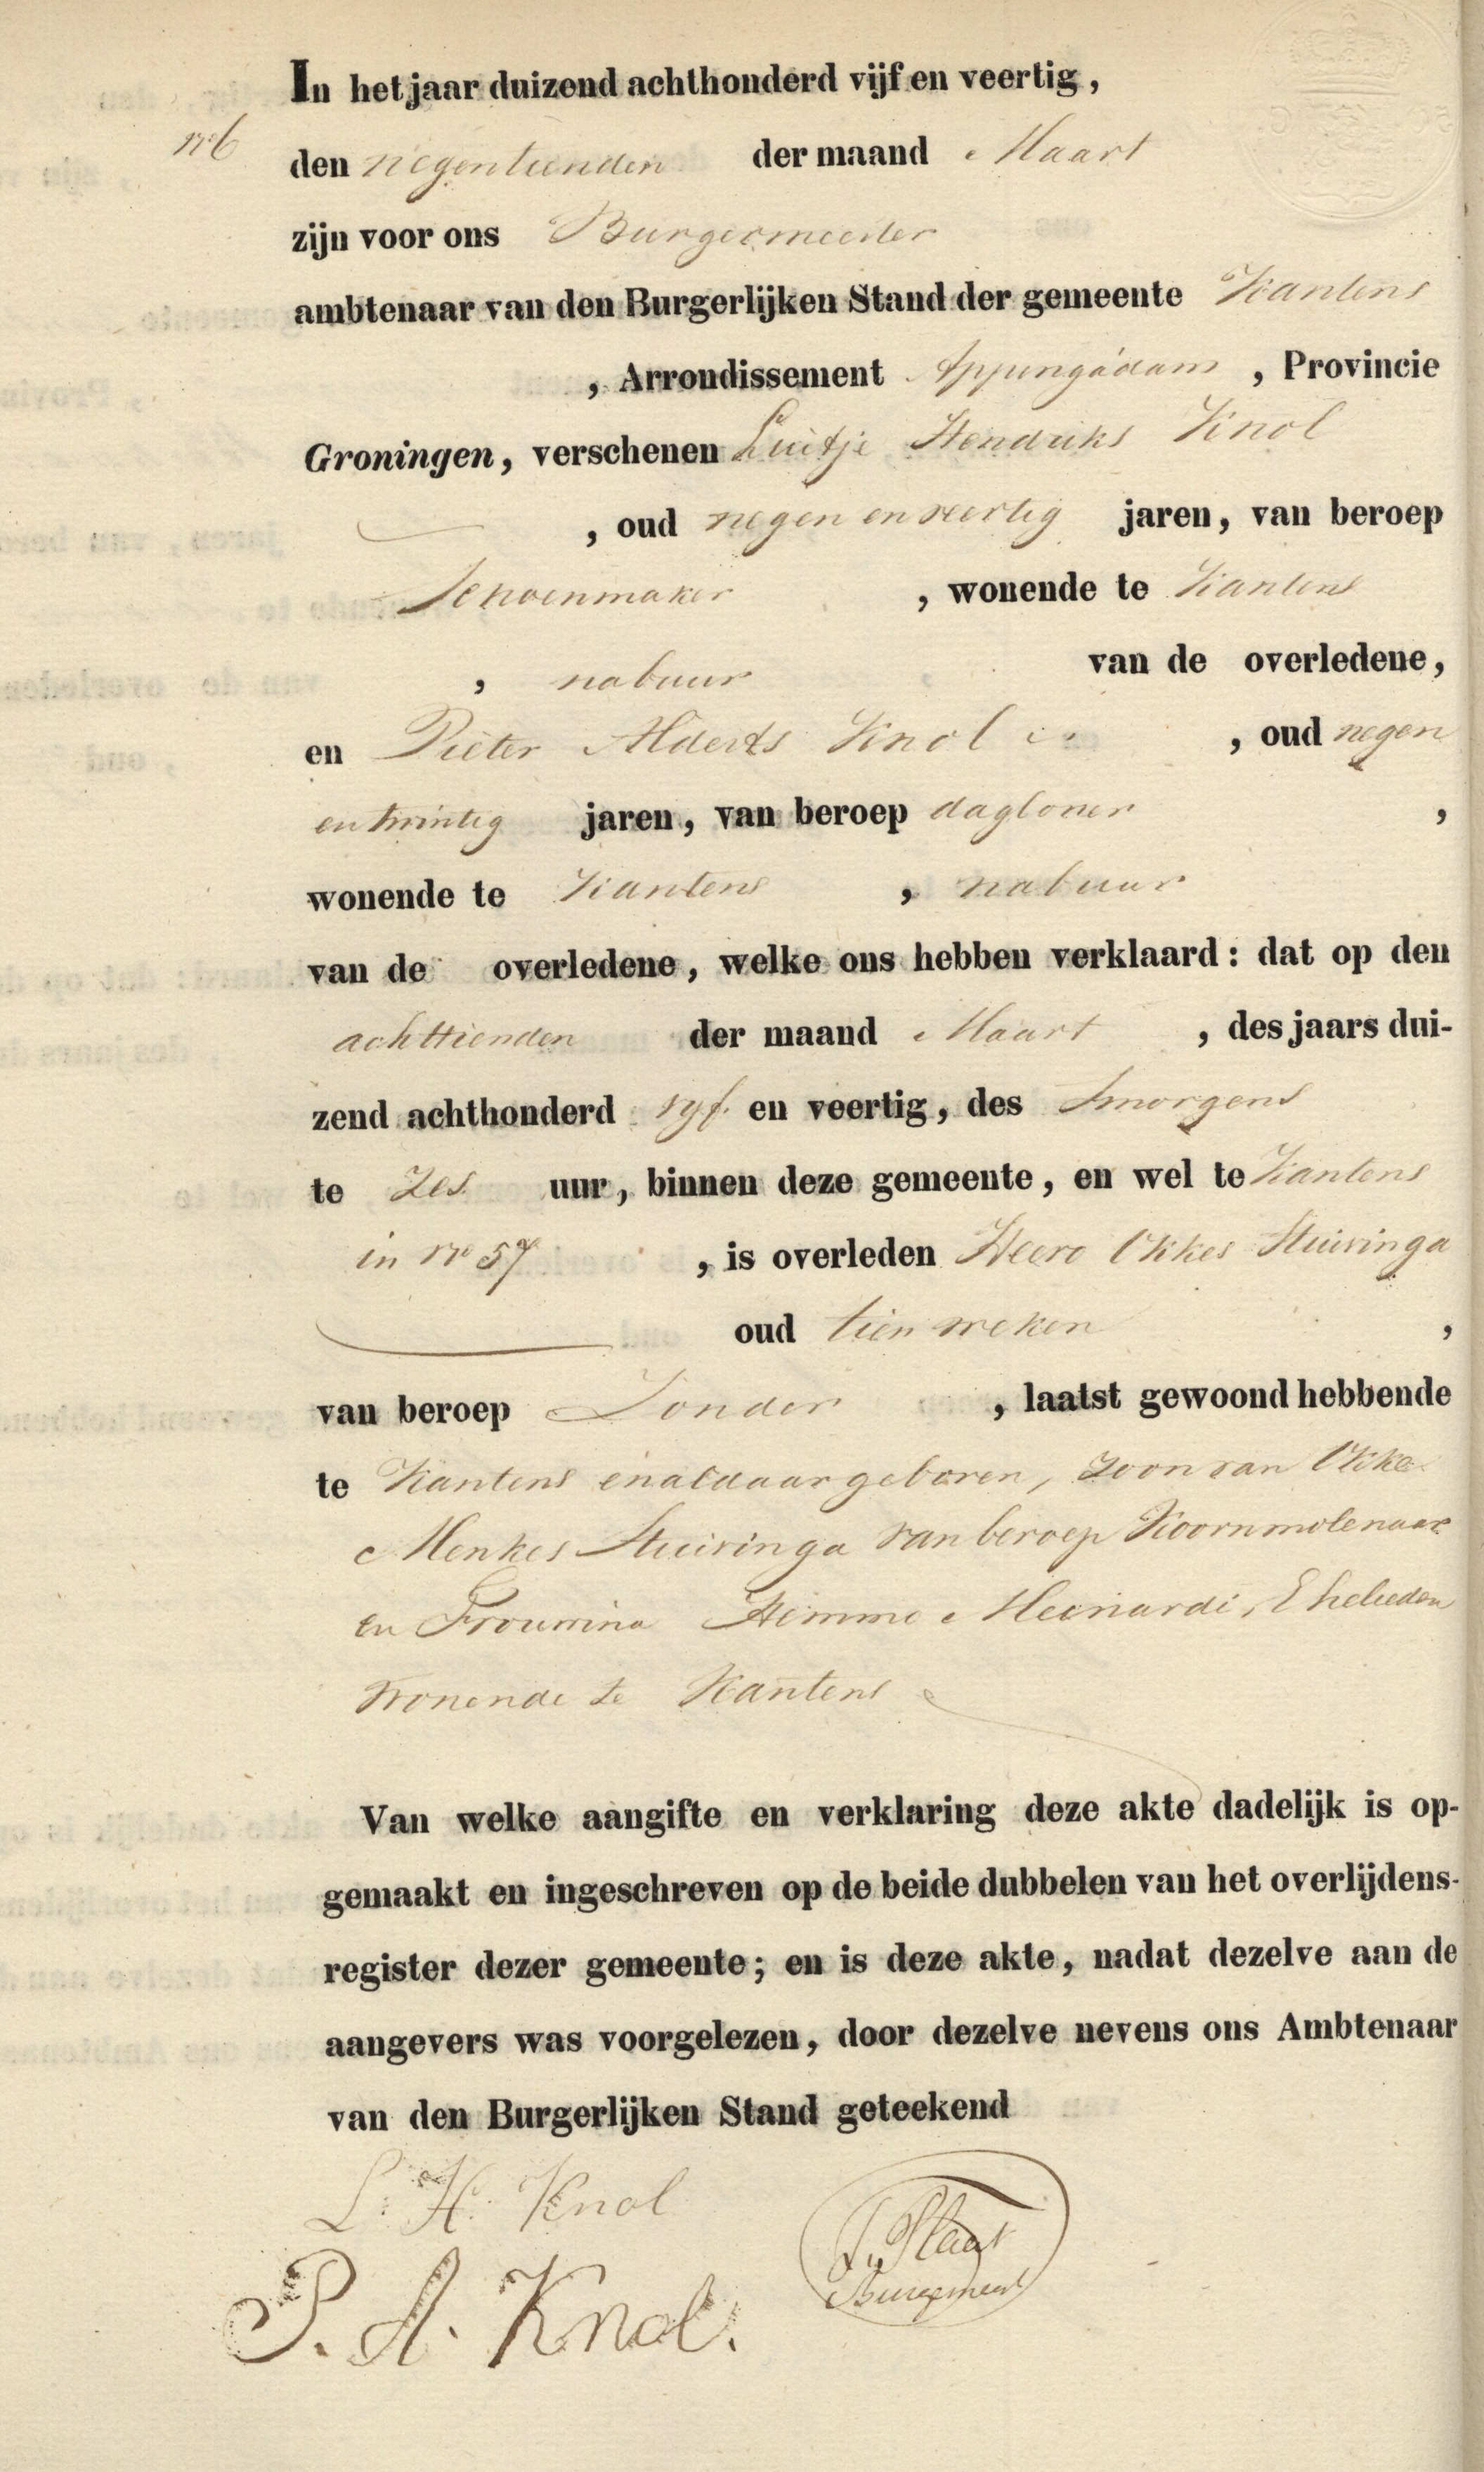 In het jaar duizend achthonderd vijf en veertig,
no 6
den negentienden der maand Maart
zijn voor ons Burgermeester
ambtenaar van den Burgerlijken Stand der gemeente Kantens
, Arrondissement Appingadam, Provincie
Groningen, verschenen Luitje Hendriks Knol
, oud negen en veertig jaren, van beroep
Schoenmaker, wonende te Kantens
, nabuur van de overledene,
en Pieter Alderts Knol, oud negen
en twintig jaren, van beroep dagloner,
wonende te Kantens, nabuur
van de overledene, welke ons hebben verklaard: dat op den
achttienden der maand Maart, des jaars dui-
zend achthonderd vyf en veertig, des Smorgens
te zes uur, binnen deze gemeente, en wel te Kantens
in no 57, is overleden Heero Okkes Stuivinga
oud tien weken,
van beroep Zonder, laatst gewoond hebbende
te Kantens en aldaar geboren, zoon van Okke
Menkes Stuivinga van beroep Koornmolenaar
en Frouwina Hemmo Meinardi, Ehelieden
wonende te Kantens
Van welke aangifte en verklaring deze akte dadelijk is op-
gemaakt en ingeschreven op de beide dubbelen van het overlijdens-
register dezer gemeente; en is deze akte, nadat dezelve aan de
aangevers was voorgelezen, door dezelve nevens ons Ambtenaar
van den Burgerlijken Stand geteekend
L. H. Knol
P. A. Knol.